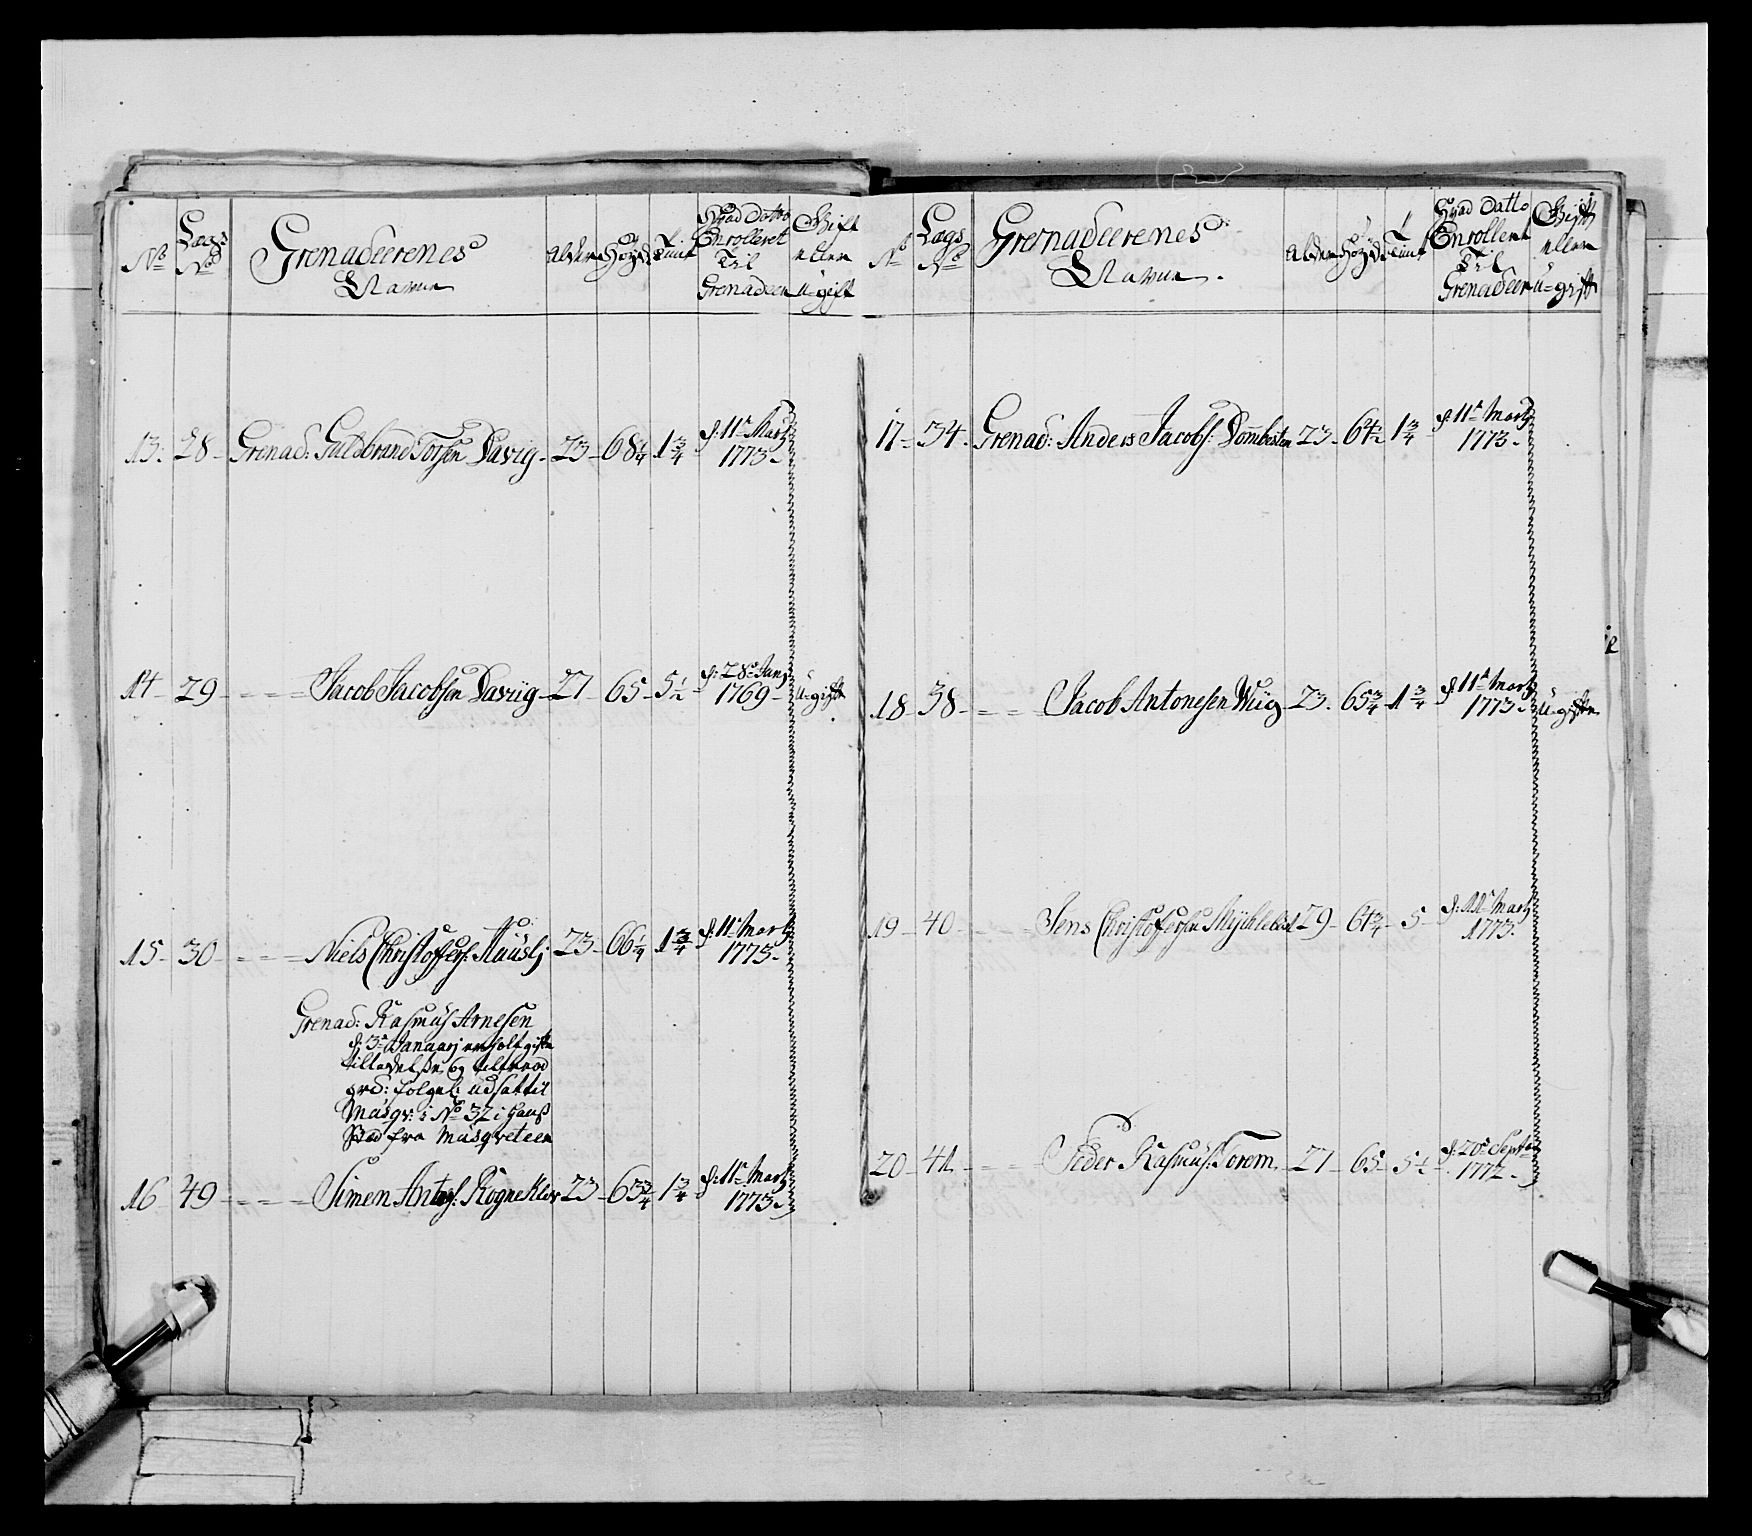 No
Lægs No
Grenadeerenes Navne
Alder
Høyde
Tient
Hvad Datto Enrolleret Til Grenadeer
Gift eller U-gift
13. 28 Grenad: Guldbrand Torsen Davig 23 68 1/4 1 3/4 d: 11te Martj 1773.
14 29 Jacob Jacobsen Daviig 27 65 5 1/2 d: 28de Janj 1769 U-gift
15 30 Niels Christoffers. 23 66 1/4 1 3/4 d: 11te Martj 1773.
Grenad: Rasmus Arnesen
d: 3de Januarj
og
grd: følgel: udsat til
Musqr: i No 32 i hans
Sted fra Musqveteer
16 49 Simen Antons. Rognekler 23 63 3/4 1 3/4 d: 11te Martj 1773.
No
Lægs No
Grenadeerenes Navne.
Alder
Høyde
Tient
Hvad Datto Enrolleret Til Grenadeer
Gift eller U-gift
17 34. Grenad: Anders Jacobs: 23 64 1/2 1 3/4 d: 11te Martj 1773.
18 38 Jacob Antonesen Wiig 23 65 3/4 1 3/4 d: 11te Martj 1773. U-gift
19 40 Jens Christoffersen 29 64 3/4 5 d: 11te Martj 1773.
20 41 Peder Rasmus: Torem 27 65 5 1/2 d: 20de Septbr 1772.